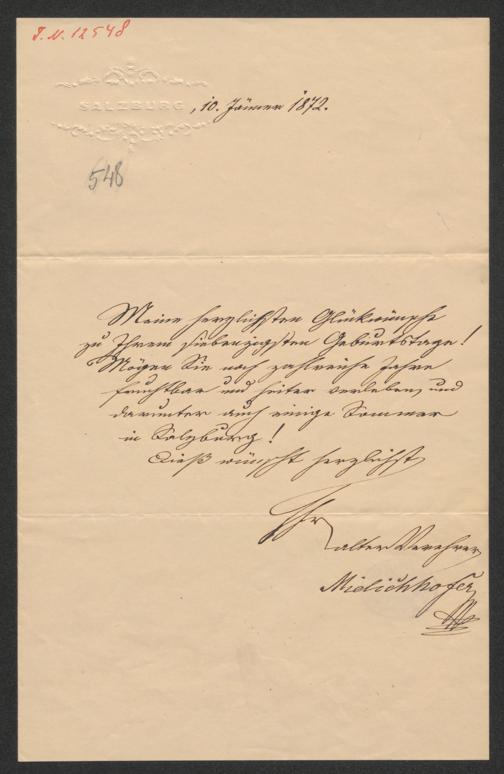 I.N. 12548
SALZBURG, 10. Jänner 1872.
548
Meine herzlichsten Glückwünsche
zu Ihrem siebenzigsten Geburtstage!
Mögen Sie noch zahlreiche Jahre
fruchtbar und heiter verleben, und
darunter auch einige Sommer
in Salzburg!
Dieß wünscht herzlichst
Ihr
alter Verehrer
Mielichhofer